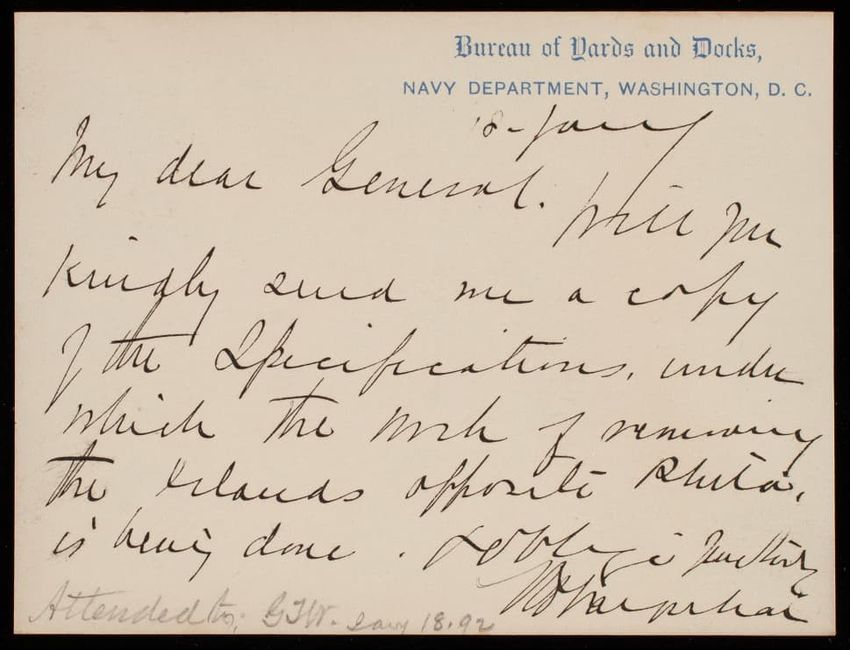 Bureau of Yards and Docks,
NAVY DEPARTMENT, WASHINGTON, D. C.
18-Jany
My dear General.
Will you
kindly send me a copy
of the Specifications, under
which the work of removing
the Islands opposite Phila,
is being done.
& oblige yours truly
Attended to; G.T.W. Jany 18.92